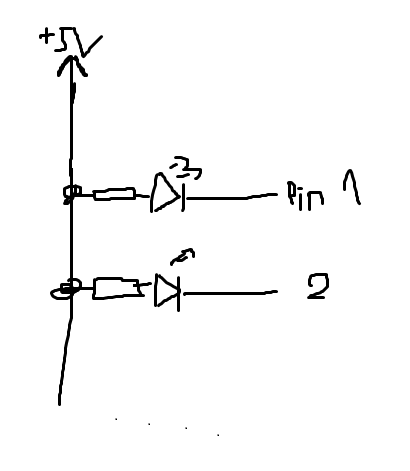 +5V
Pin 1
2